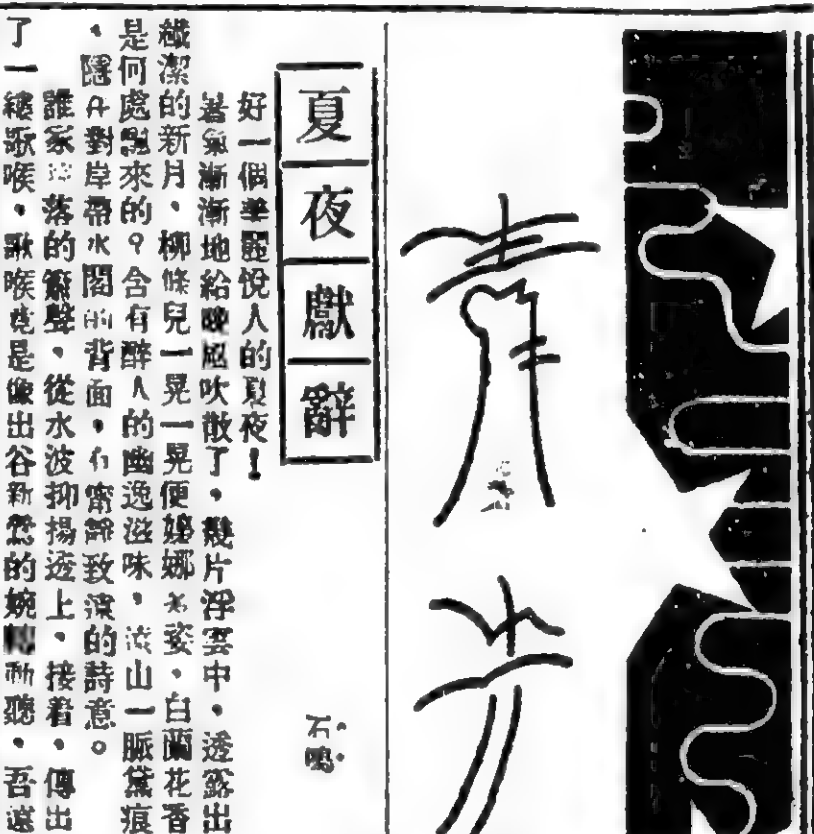 青
夏夜獻辭
石鳴
好一個華麗悅人的夏夜！
暑氣漸漸地給晚風吹散了，幾片浮雲中，透露出
纖潔的新月，柳條兒一晃一晃便婭娜多姿，白蘭花香
是何處飄來的？含有醉人的幽逸滋味，遠山一脈黛痕
，隱 對岸帶水閣的背面，有甯靜致遠的詩意。
誰家 落的簫聲，從水波抑揚送上，接着，傳出
了一縷歌喉，歌喉竟是像出谷新鶯的婉轉動聽，吾